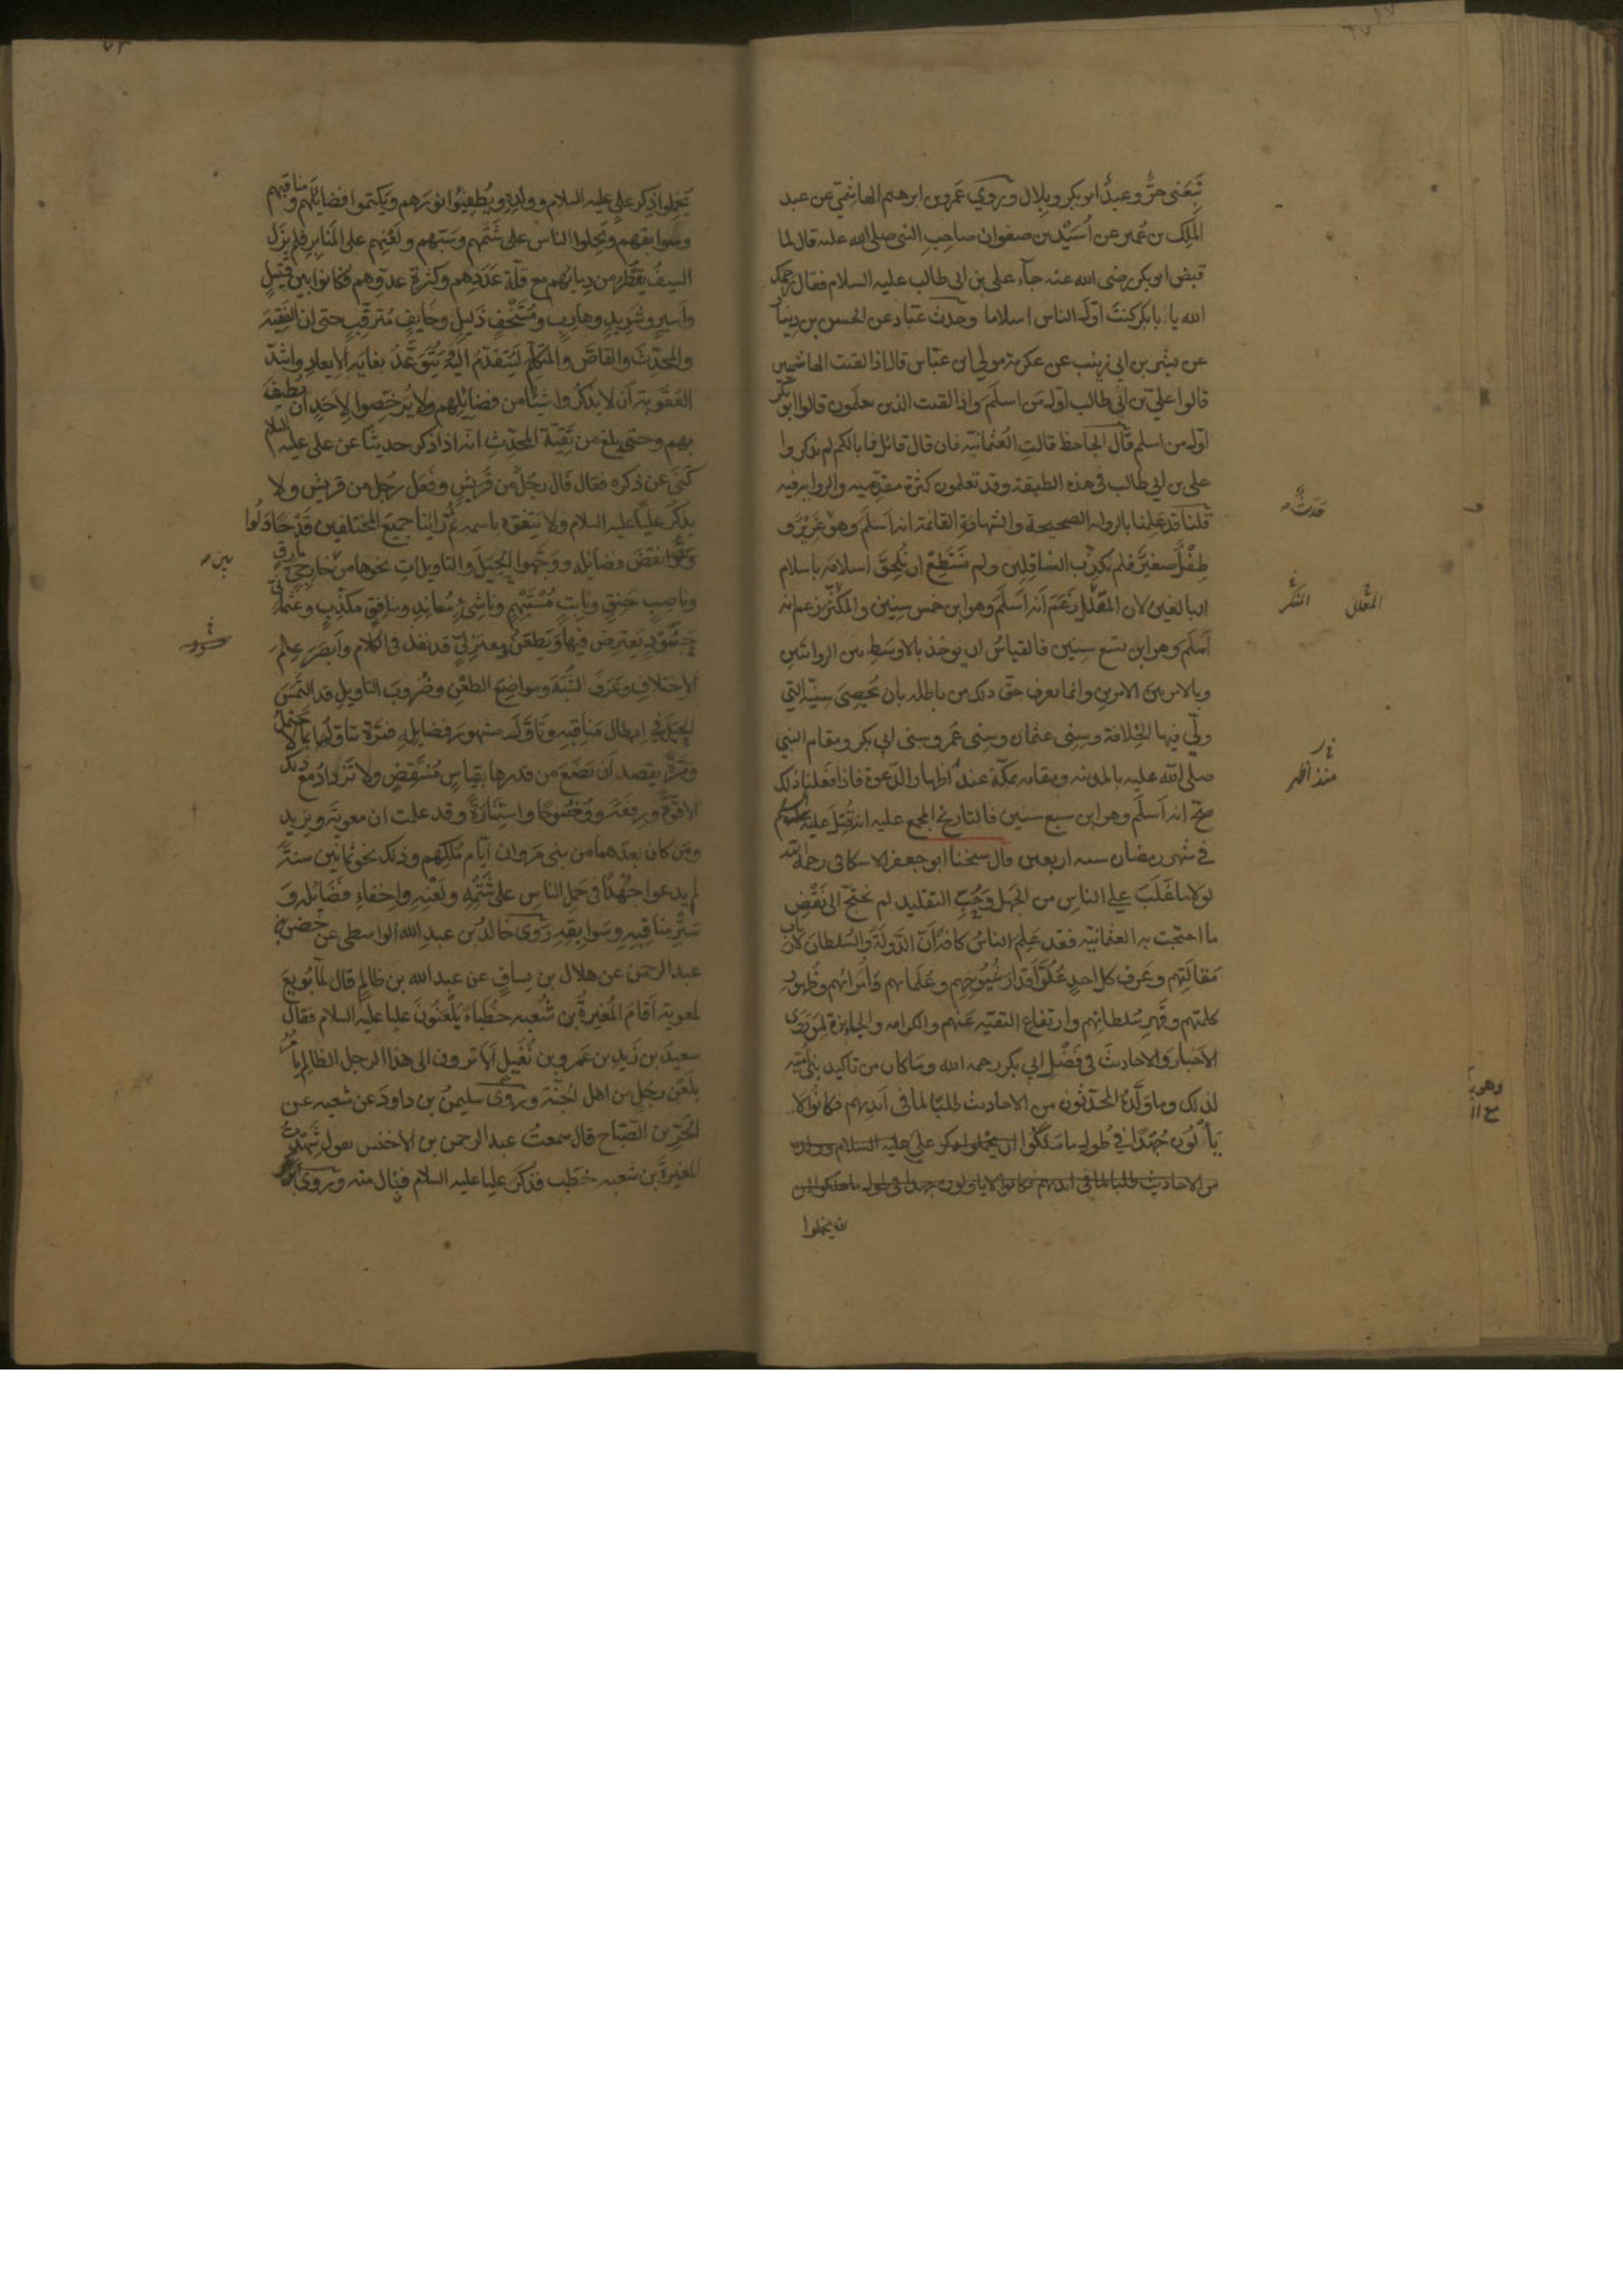 تبعني حرٌّ وعبدٌ ابو بكر وبلال وروي عَمرو بن ابرهيم الهاشمي عن عبد
الملك بن عُمير عن اُسَيْد بن صفوان صاحِبِ النبى صلى الله عليه قال لما
قبض ابو بكر رضى الله عنه جآء على بن ابى طالب عليه السلام فقال رحمك
الله يا ابا بكر كنتَ اوّلَ الناس اسلاما وحدث عَبّاد عن الحسن بن دينار
عن بشر بن ابى زينب عن عكرمة مولى ابن عبّاس قال اذا لقيت الهاشميين
قالوا علي بن ابى طالب اوّل من اسلَمَ واذا لقيت الذين يعلمون قالوا ابو بكر
اوّل من اسلم قال الجاحظ قالت العثمانيّة فان قال قائل فما بالكم لم تذكروا
على بن ابي طالب فى هذه الطبقة وقد تعلمون كثرة مقدّميه والرواية فيه
قلنا قد عَلِمنا بالرواية الصحيحة والشهادة القائمة انه اَسلَم وهو غَرِيْرٌ و
طِفْلٌ صغيرٌ فلم نكذّب الناقلين ولم نَسْتَطِعْ ان نُلحِقَ اسلامَه باسلام
البالغين لان المقلّل زَعَمَ اَنه اَسلَمَ وهو ابن خمس سنين والمكثّر زعم انه
اَسلَم وهو ابن تسع سنين فالقياسُ ان يوخذ بالاوسَطِ من الروايتين
وبالامر بين الامرين وانما يعرف حقّ ذلك من باطله بان نُحصِىَ سِنِيّه التي
ولّي فيها الخِلافة وسِنِى عثمان وسِنى عُمَر وسنى ابى بكر ومقام النبي
صلى الله عليه بالمدينه ومقامه بمكّة عند اظهار الدّعوة فاذا فعلنا ذلك
صحّ انه اَسلَم وهو ابن سبع سنين فالتاريخ المجمع عليه انه قُتِل عليه السلام
في شهر رمضان سنه اربعين قال شيخنا ابو جعفر الاسكافى رحمه الله
لولا ما غَلَبَ على الناسِ من الجهل وحُبّ التقليد لم نحتج الى نقْضِ
ما احتجت به العثمانيّة فقد عَلِم الناسُ كافّة اَن الدّولَة والسُلطان لارباب
مَقالَتِهم وعَرف كل احدٍ عُلوّ اَقدار شُيُوخِهم وعُلَمائهم واُمَرائهم وظُهور
كلمتهم وقَهرِ سُلطانِهم وارتفاع التقيّه عنهم والكرامه والجائزة لِمَن رَوى
الاَخبار والاحاديثَ فى فَضْلِ ابى بكر رحمه الله وما كان من تاكيد بنى اُميّه
لذلك وما ولّدهُ المحدّثون من الاحاديث طلبًا لما فى اَيديهم فكانوا لا
يَأْلُون جُهْدًا فى طُول ما مَلكُوا ان يُخْمِلوا ذكر علي عليه السلام وولده
من الاحاديث طلبا لما فى ايديهم فكانوا لا يالون جهدا فى طول ما ملكوا ان
ان يخملوا
حَدَثٌ
المقلل
المكثر
منذ اظهر
يُخمِلوا ذِكر علىٍّ عليه السلام وولدِه ويُطفِئُوا نورَهم ويَكتموا فضائلَهم ومناقبهم
وسَوابقهم ويَحملوا الناس على شَتْمهم وسَبّهم ولَعْنِهم على المنَابِر فلم يَزل
السيفُ يقطُر من دِمائهم مع قلّة عَدَدِهم وكثرةِ عدوّهم فكانوا بين قتيلٍ
واَسيرٍ وشَرِيدٍ وهاربٍ ومُسْتخْفٍ ذَليلٍ وخَايفٍ مُترقِّبٍ حتى ان الفقِيهَ
والمحدِّثَ والقاصّ والمتكلّم لَيُتقدّمُ اليه ويُتَوعّدُ بغايَه الايعادِ واشدّ
العقوبة اَن لا يذكُروا شيئًا من فضائلِهم ولا يُرَخّصوا لاحَدٍ ان يُطيف
بهم وحتى بلغ من تَقيّة المحدّث انه اذا ذكر حديثًا عن على عليه السلام
كَنَى عن ذكره فقال قال رجُلٌ من قُريش وفَعَل رجُل من قريش ولا
يذكر عليًّا عليه السلام ولا يَتفوّه باسمه ثمّ راينا جميعَ المختلفين قَدْ حاوَلُوا
نقضَ فضائله ووجّهوا الحِيَل والتاويلاتِ نحوها من خارجيّ مارقٍ
وناصِبٍ حَنِقٍ ونابتٍ مُسْتَبْهِمٍ وناشئٍ مُعانِدٍ ومنافقٍ مكذّبٍ وعثمانىٍّ
حَسُودٍ يَعترض فيها ويَطعَنُ ومعتزلىّ قد نفذ فى الكلام واَبصَرَ عِلمَ
الاختلافِ وعَرَفَ الشُبَهَ ومواضِعَ الطعْن وضُروبَ التاويلِ قد التمَسَ
الحِيَل في ابطال مَناقِبِه وتاَوّلَ مشهورَ فضايلِه فمَرّةً يتاوّلُها بما لا يحتمل
ومَرّةً يقصد اَن يَضَعَ من قدرها بقياسٍ مُنْتقِضٍ ولا تَزدادُ مع ذلك
الا قُوّةً ورِفعَةً ووُضُوحًا واستنارةً وقد علمت ان معويةَ ويزيد
ومَن كان بعدَهما من بنى مَروان ايّام مُلكِهم وذلك نحو ثمانين سنةً
لم يدعوا جُهْدًا فى حَمل الناسِ على شَتْمِه ولَعْنِه واِخفاءِ فضائله و
سَتْرِ مناقِبِه وسَوابقِه رَوى خالد بن عبد الله الواسطى عن حُصين بن
عبد الرحمن عن هلال بن يساف عن عبد الله بن ظالم قال لمّا بُويعَ
لمعوية اَقامَ المُغيرةُ بن شُعبه خطَباءَ يَلْعنُونَ عليا عليه السلام فقال
سعيدُ بن زَيد بن عَمرو بن نُفَيل اَلا ترون الى هذا الرجل الظالم يامر
يلَعْن رجُلٍ من اهل الجَنّة وروى سليمن بن داودَ عن شعبه عن
الحُرّ بن الصّبّاح قال سمعتُ عبد الرحمن بن الاخنس يقول شَهِدتُ
المغيرةَ بن شعبه خطَب فذكر عليا عليه السلام فنال منه وروى
حسود